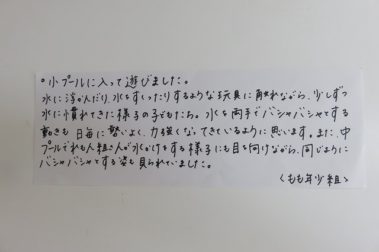 。小プールに入って遊びました。
水に浮かんだり、水をすくったりするような玩具に触れながら、少しずつ
水に慣れてきた様子の子どもたち。水を両手でバシャバシャとする
動きも日毎に勢いよく、力強くなってきているように思います。また、中
プールで 組さんが水かけをする様子にも目を向けながら、同じように
バシャバシャとする姿も見られていました。
〈もも年少組〉